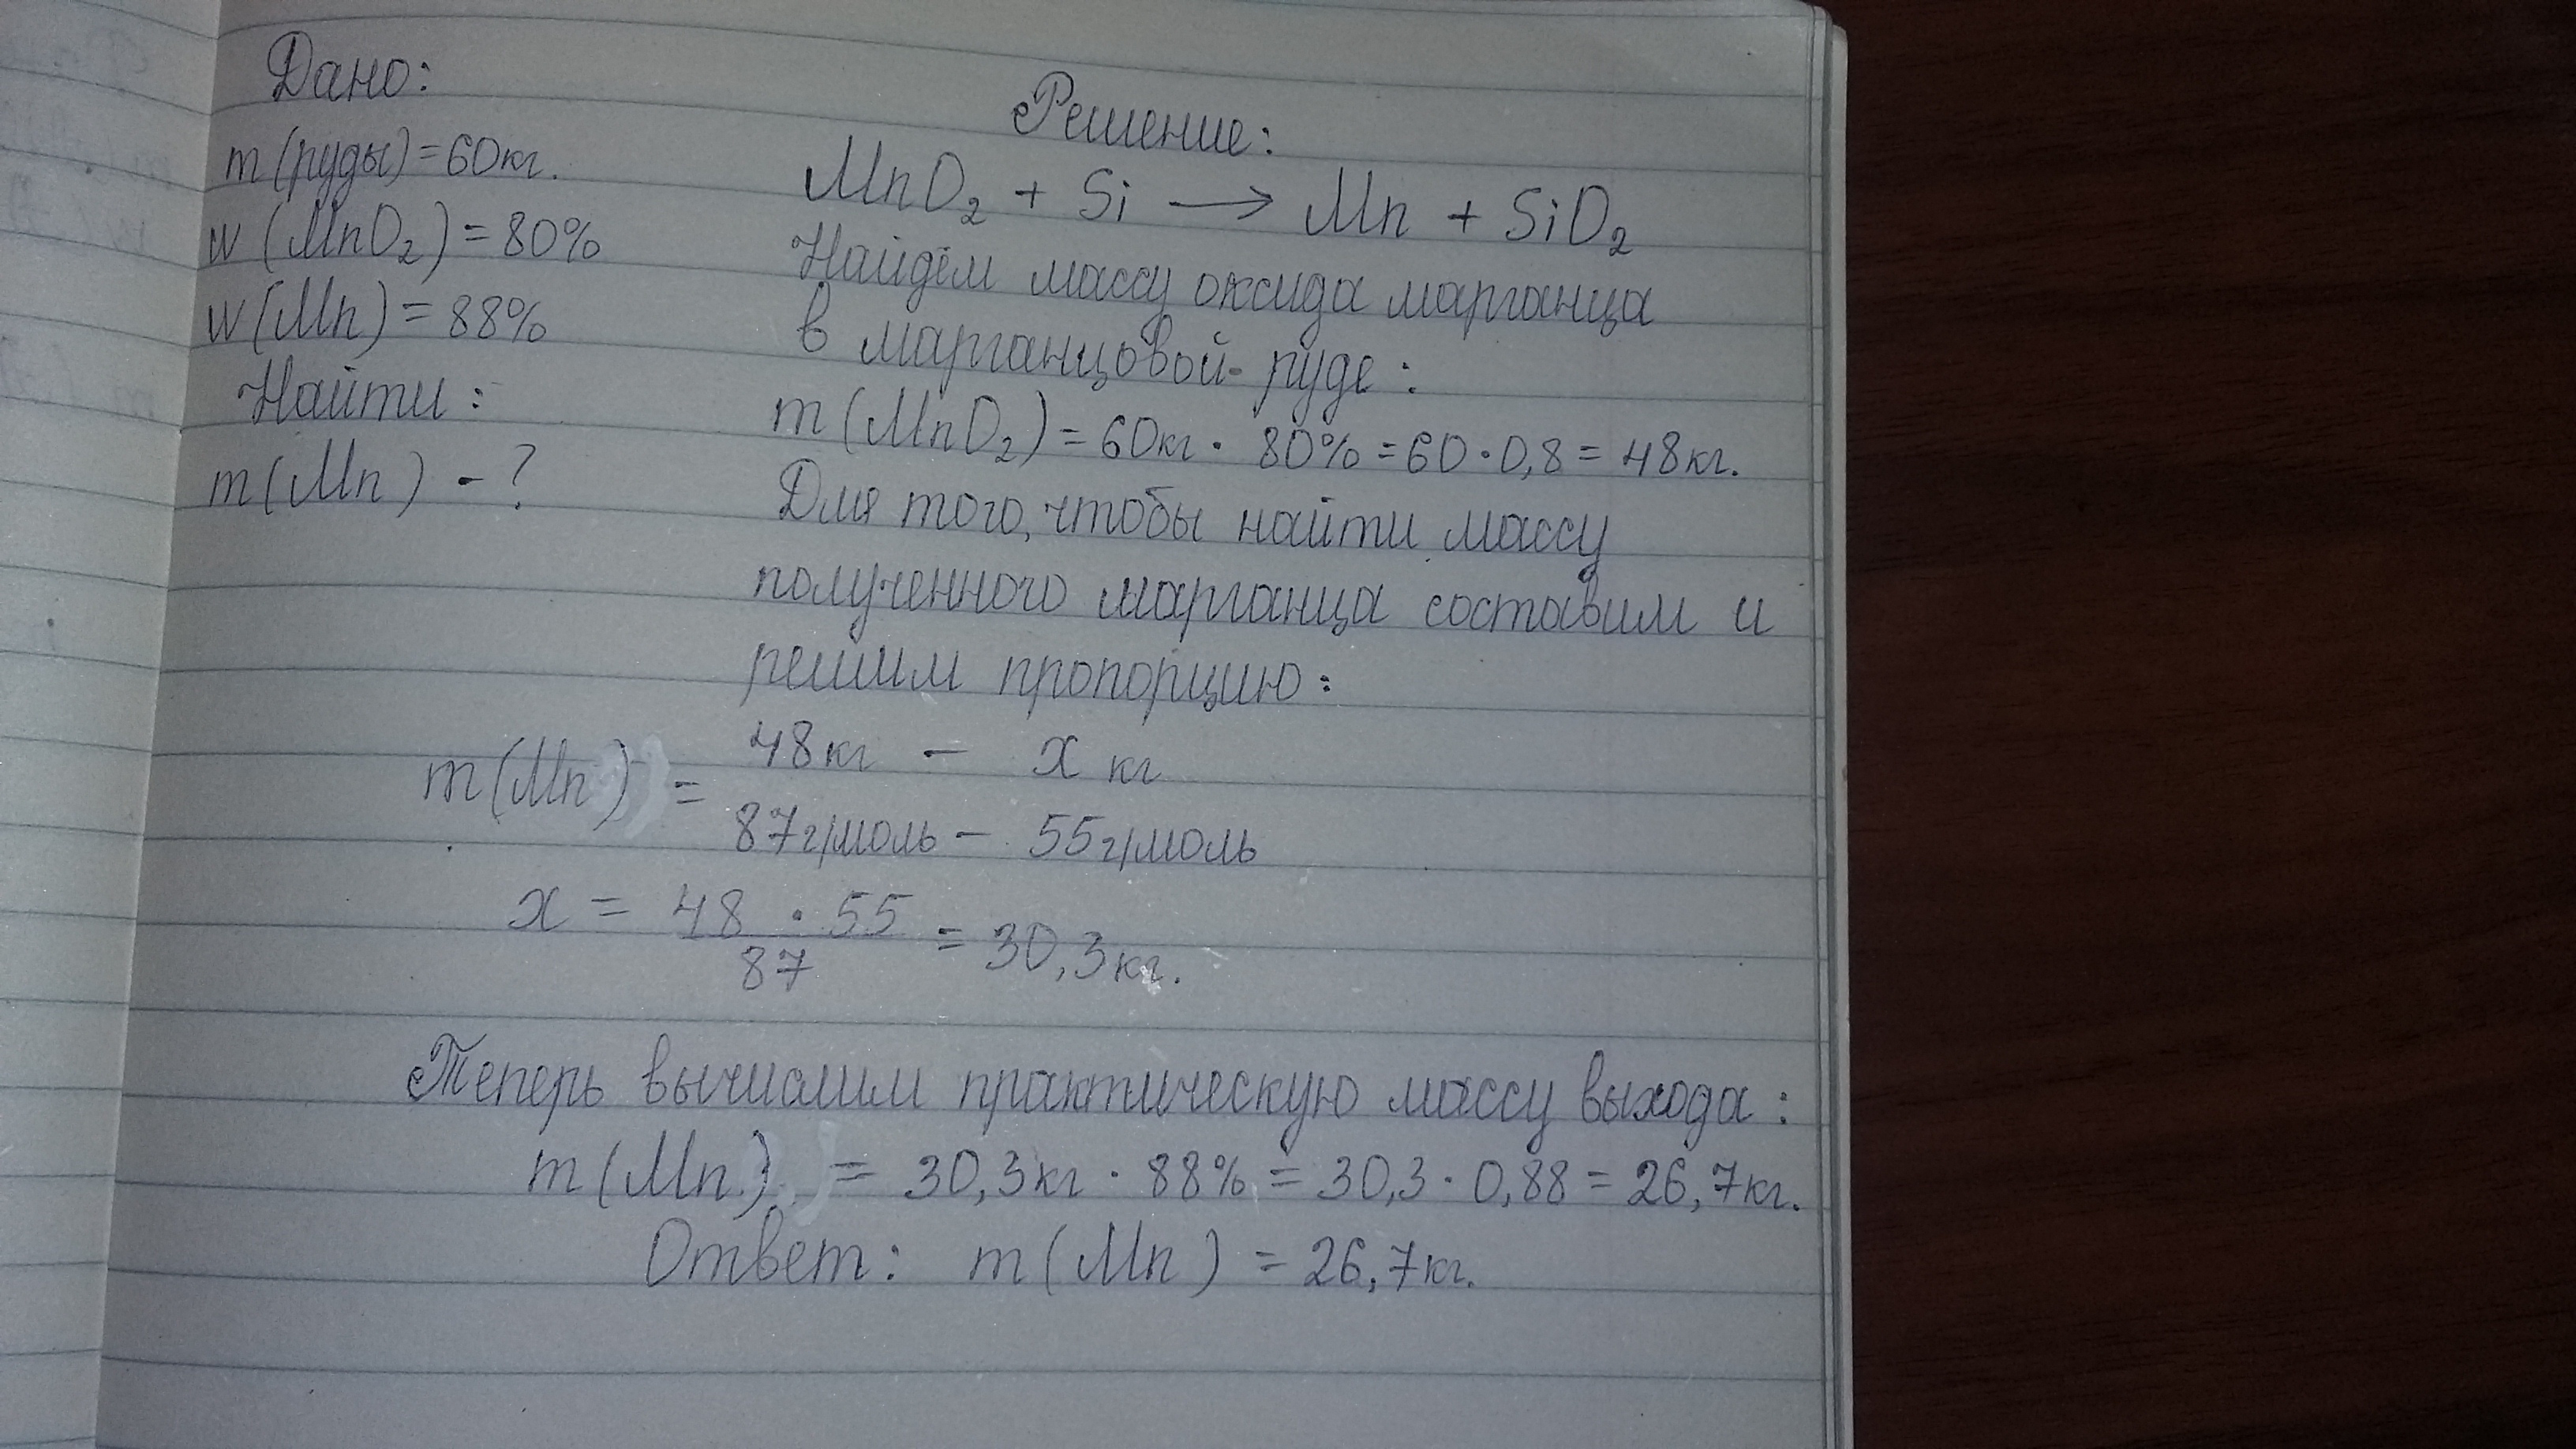 Дано:
m (руды) = 60кг.
w (MnO₂) = 80%
w (Mn) = 88%
Найти:
m (Mn) - ?
Решение:
MnO₂ + Si → Mn + SiO₂
Найдём массу оксида марганца
в марганцовой руде:
m (MnO₂) = 60кг · 80% = 60 · 0,8 = 48кг.
Для того, чтобы найти массу
полученного марганца составим и
решим пропорцию:
48кг - x кг
m (Mn) =
87г/моль - 55г/моль
x = 48 · 55 / 87 = 30,3кг.
Теперь вычислим практическую массу выхода:
m (Mn) = 30,3кг · 88% = 30,3 · 0,88 = 26,7кг.
Ответ: m (Mn) = 26,7кг.